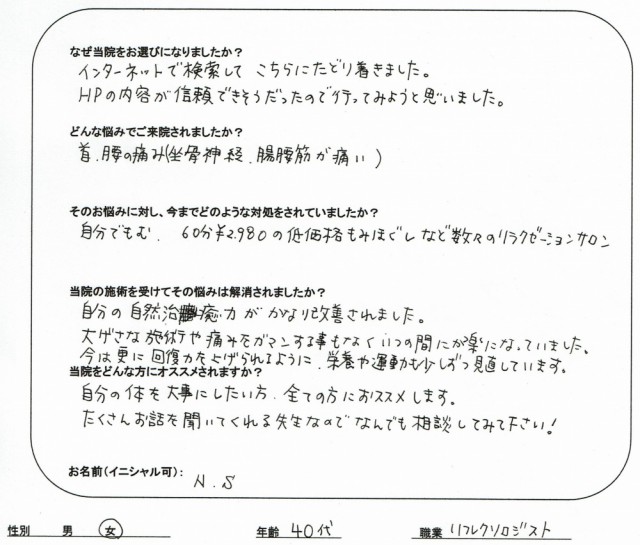 なぜ当院をお選びになりましたか？
インターネットで検索して こちらにたどり着きました。
HPの内容が信頼できそうだったので行ってみようと思いました。
どんな悩みでご来院されましたか？
首、腰の痛み(坐骨神経、腸腰筋が痛い)
そのお悩みに対し、今までどのような対処をされていましたか？
自分でもむ、 60分¥2.980の低価格もみほぐしなど数々のリラクゼーションサロン
当院の施術を受けてその悩みは解消されましたか？
自分の自然治癒力がかなり改善されました。
大げさな施術や痛みをガマンする事もなくいつの間にか楽になっていました。
今は更に回復力を上げられるように、栄養や運動も少しずつ見直しています。
当院をどんな方にオススメされますか？
自分の体を大事にしたい方、全ての方におススメします。
たくさんお話を聞いてくれる先生なのでなんでも相談してみて下さい！
お名前(イニシャル可)： N.S
性別 男 女 年齢 40代 職業 リフレクソロジスト